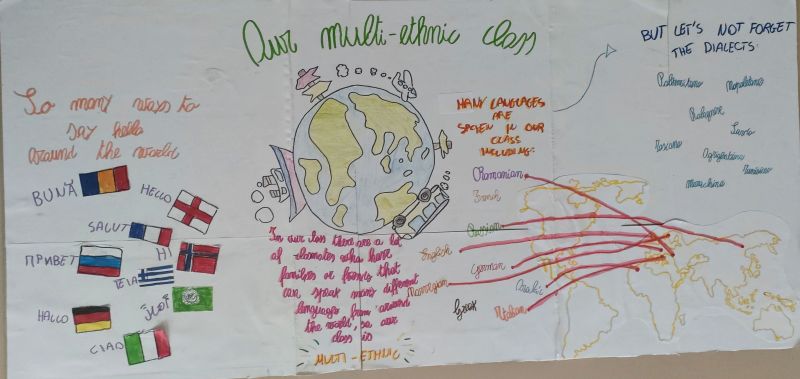 Our multi-ethnic class
So many ways to
say hello
around the world
BUNĂ
HELLO
SALUT
ПРИВЕТ
HI
HALLO
CIAO
In our class there are a lot
of classmates who have
families or friends that
can speak many different
languages from around
the world, so our
class is
MULTI-ETHNIC
MANY LANGUAGES
ARE
SPOKEN IN OUR
CLASS
INCLUDING:
Romanian
French
Russian
English
German
Norwegian
Arabic
Greek
Italian
BUT LET'S NOT FORGET
THE DIALECTS:
Palermitano
Napoletano
Pugliese
Sardo
Toscano
Agrigentino
Marchigiano